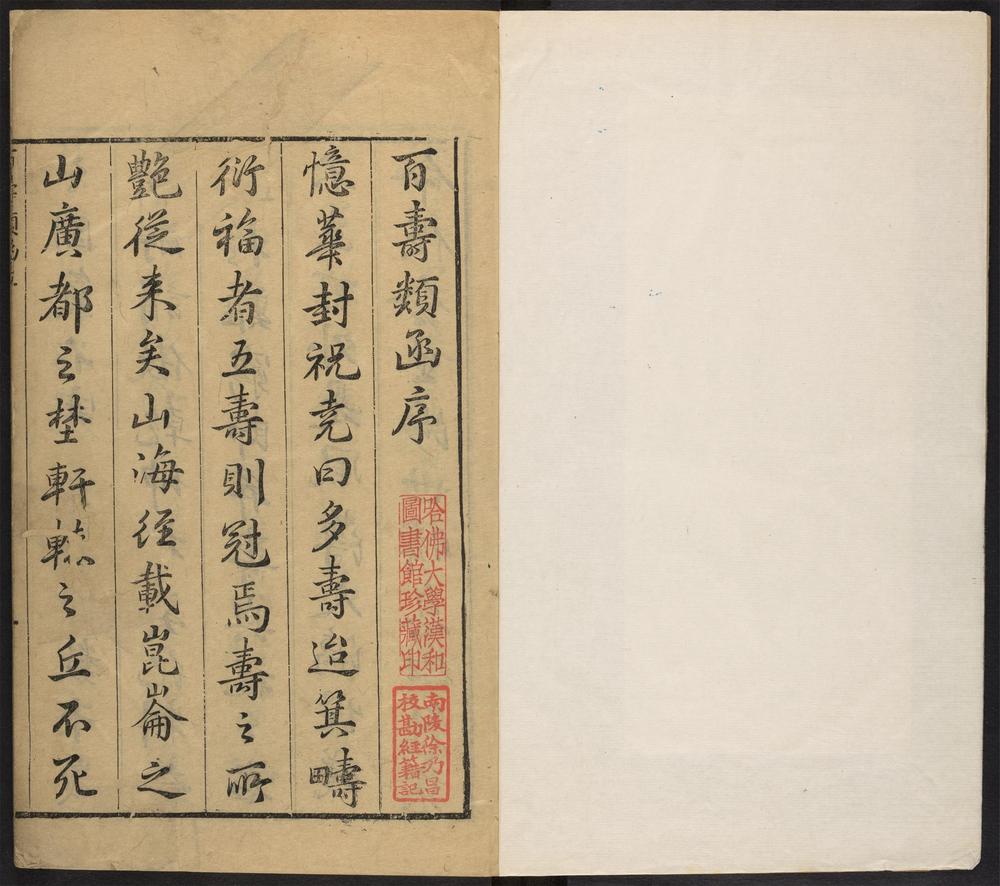 百壽類函序
哈佛大學漢和
圖書館珍藏印
南陵徐乃昌
校勘經籍記
憶華封祝堯曰多壽迨箕疇
衍福者五壽則冠焉壽之所
艷從来矣山海徑載崑崙之
山廣都之埜軒轅之丘不死